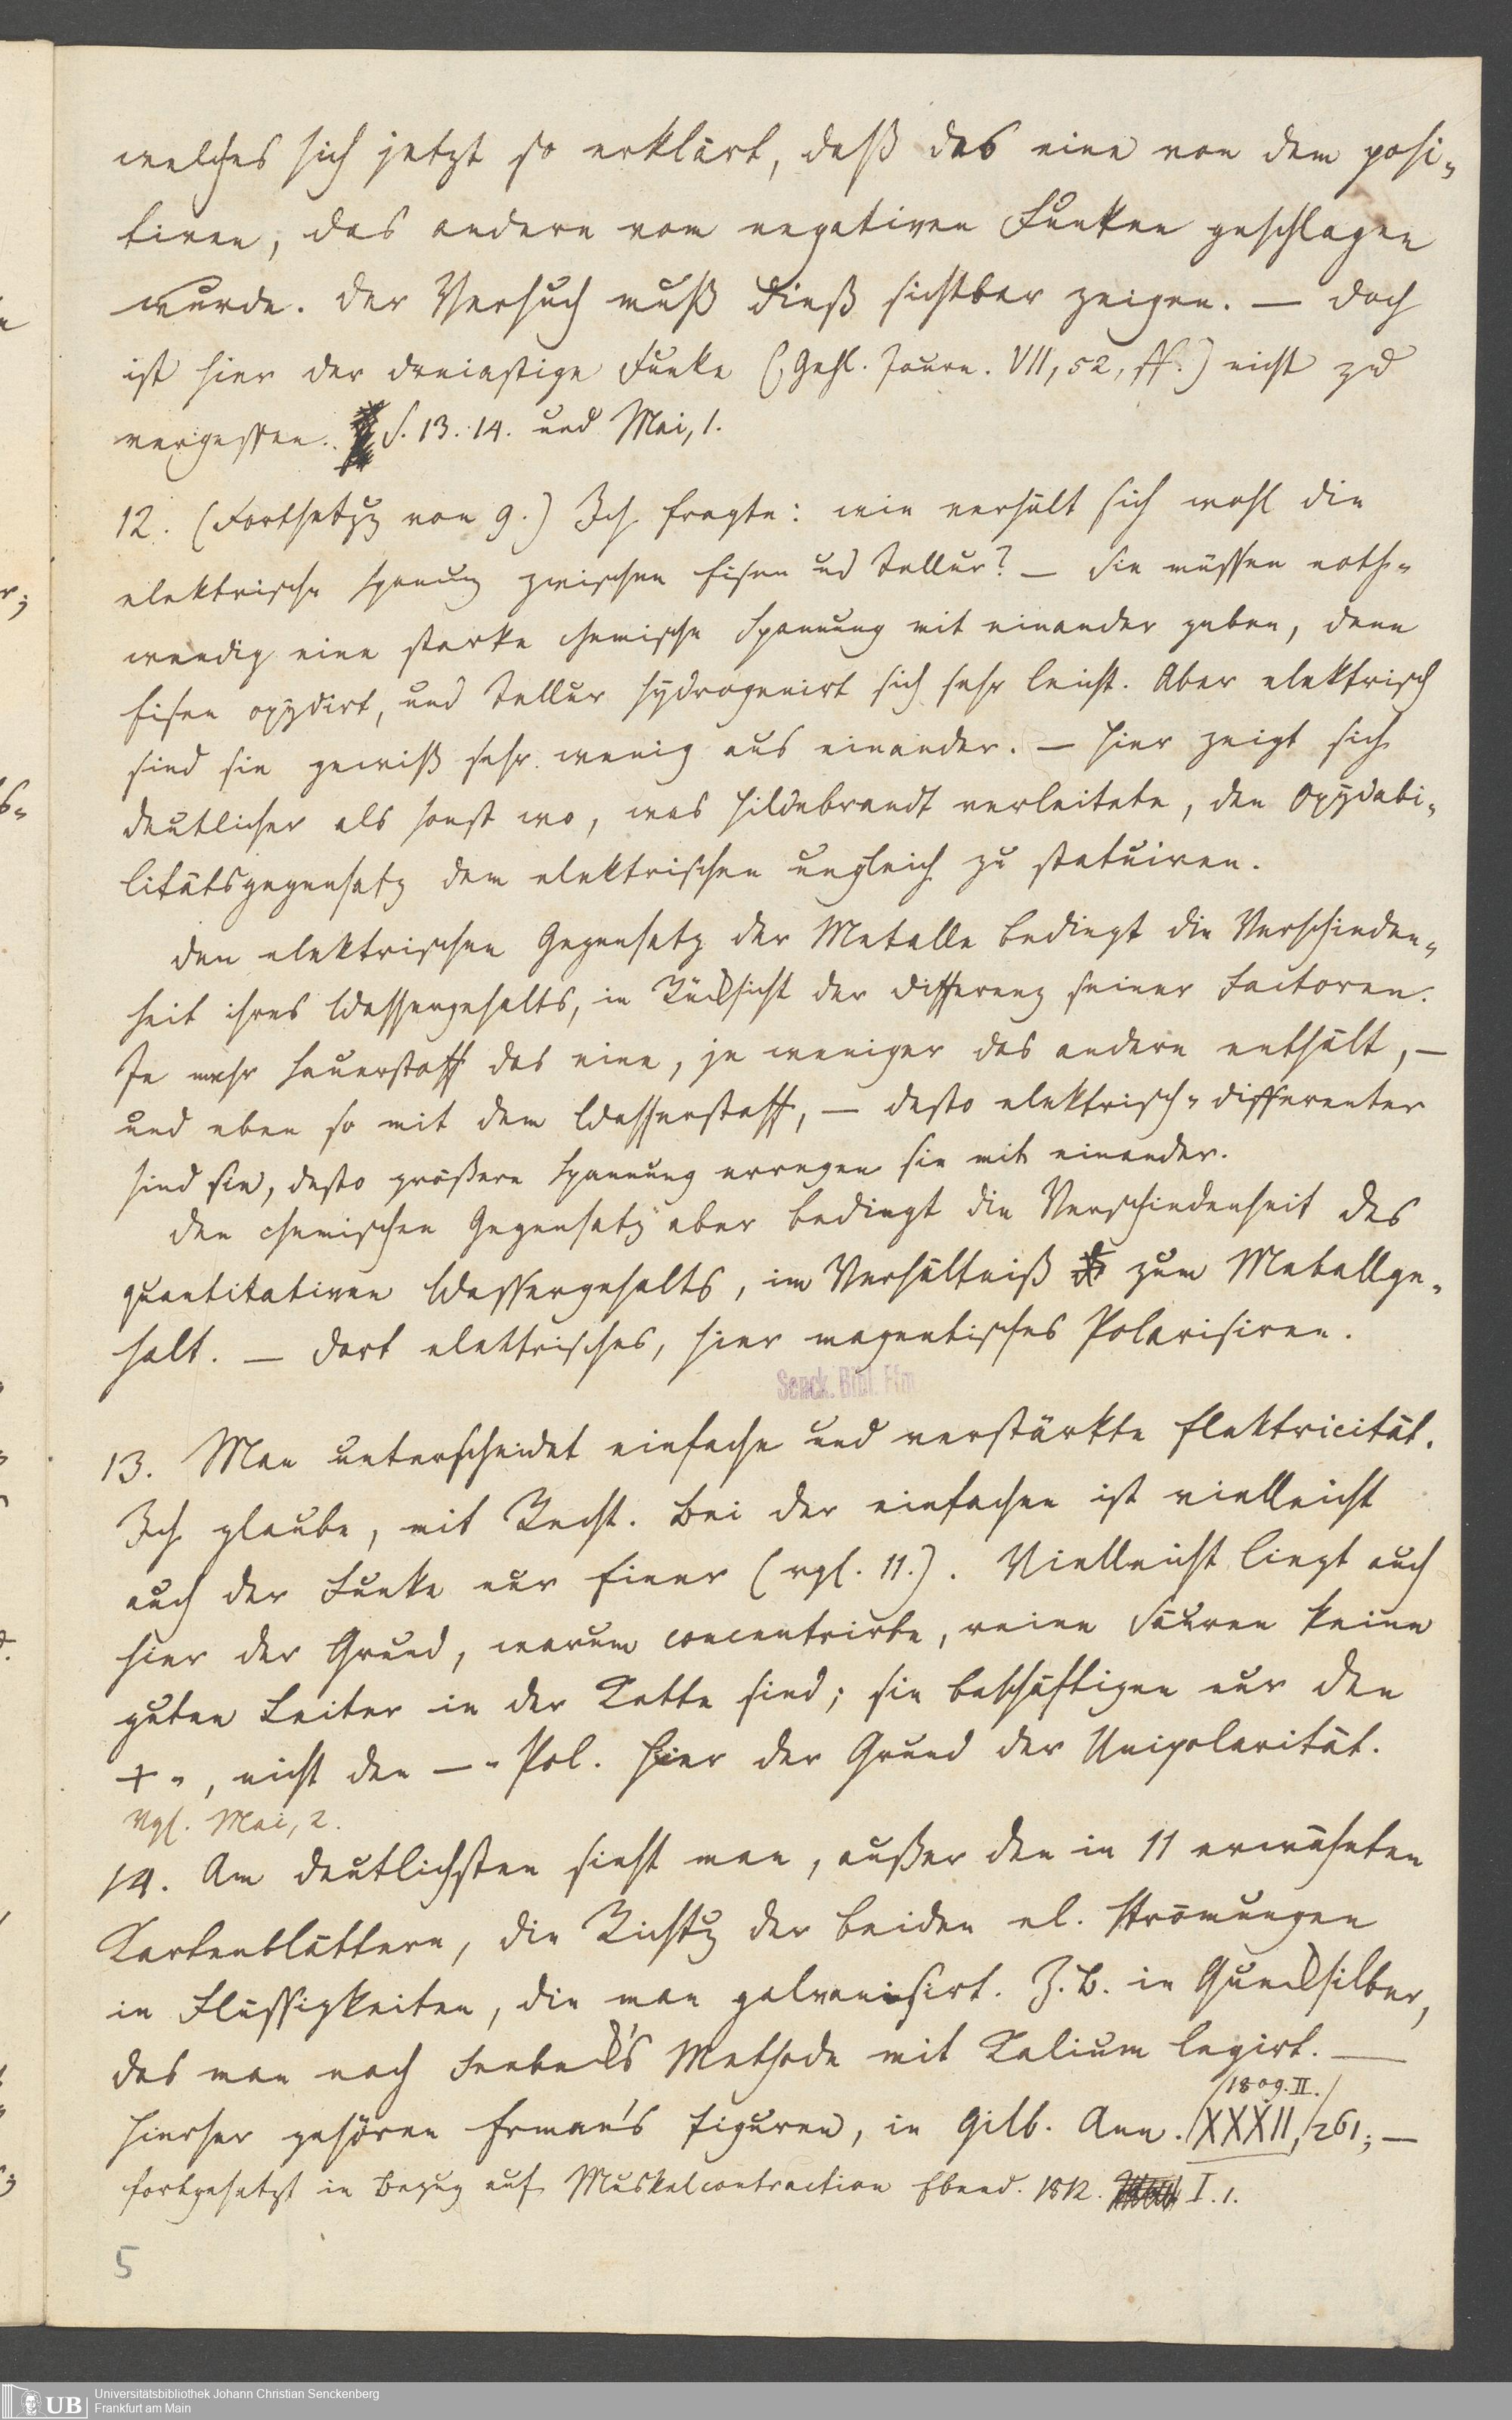 welches sich jetzt so erklärt, daß das eine von dem posi-
tiven, das andere vom negativen Funken geschlagen
wurde. Der Versuch muß dieß sichtbar zeigen. — Doch
ist hier der dreiastige Funke (Gehl. Journ. VII, 52, ff.) nicht zu
vergessen. S. 13. 14. und Mai, 1.
12. (Fortsetzg von 9.) Ich fragte: wie verhält sich wohl die
elektrische Spanung zwischen Eisen und Tellur? — Sie müssen noth-
wendig eine starke chemische Spannung mit einander geben, denn
Eisen oxydirt, und Tellur hydrogenirt sich sehr leicht. Aber elektrisch
sind sie gewiß sehr wenig aus einander. — Hier zeigt sich
deutlicher als sonst wo, was Hildebrandt verleitete, den Oxydabi-
litätsgegensatz dem elektrischen ungleich zu statuiren.
Den elektrischen Gegensatz der Metalle bedingt die Verschieden-
heit ihres Wassergehalts, in Rücksicht der Differenz seiner Factoren.
Je mehr Sauerstoff das eine, je weniger das andere enthält, —
und eben so mit dem Wasserstoff, — desto elektrisch-differenter
sind sie, desto größere Spannung erregen sie mit einander.
Den chemischen Gegensatz aber bedingt die Verschiedenheit des
quantitativen Wassergehalts, im Verhältniß zum Metallge-
halt. — Dort elektrisches, hier magnetisches Polarisiren.
Senck. Bibl. Ffm
13. Man unterscheidet einfache und verstärkte Elektricität.
Ich glaube, mit Recht. Bei der einfachen ist vielleicht
auch der Funke nur Einer (vgl. 11.). Vielleicht liegt auch
hier der Grund, warum concentrirte, reine Säuren keine
guten Leiter in der Kette sind; sie beschäftigen nur den
+-, nicht den —-Pol. Hier der Grund der Unipolarität.
Vgl. Mai, 2.
14. Am deutlichsten sieht man, außer den in 11 erwähnten
Kartenblättern, die Richtg der beiden el. Strömungen
in Flüssigkeiten, die man galvanisirt. Z.B. in Quecksilber,
das man nach Seebeck's Methode mit Kalium legirt. —
/1809. II./
Hierher gehören Erman's Figuren, in Gilb. Ann. /XXXII,/ 261; —
fortgesetzt in Bezug auf Muskelcontraction Ebend. 1812. I. 1.
5
UB
Universitätsbibliothek Johann Christian Senckenberg
Frankfurt am Main